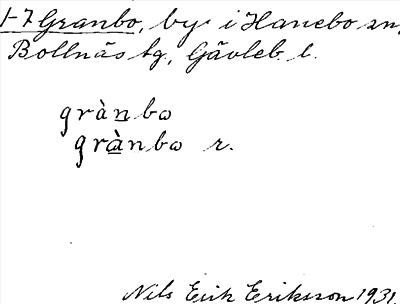 1-7 Granbo, by i Hanebo sn,
Bollnäs tg, Gävleb l.
grànbɷ
grànbɷ r.
Nils Erik Eriksson 1931.